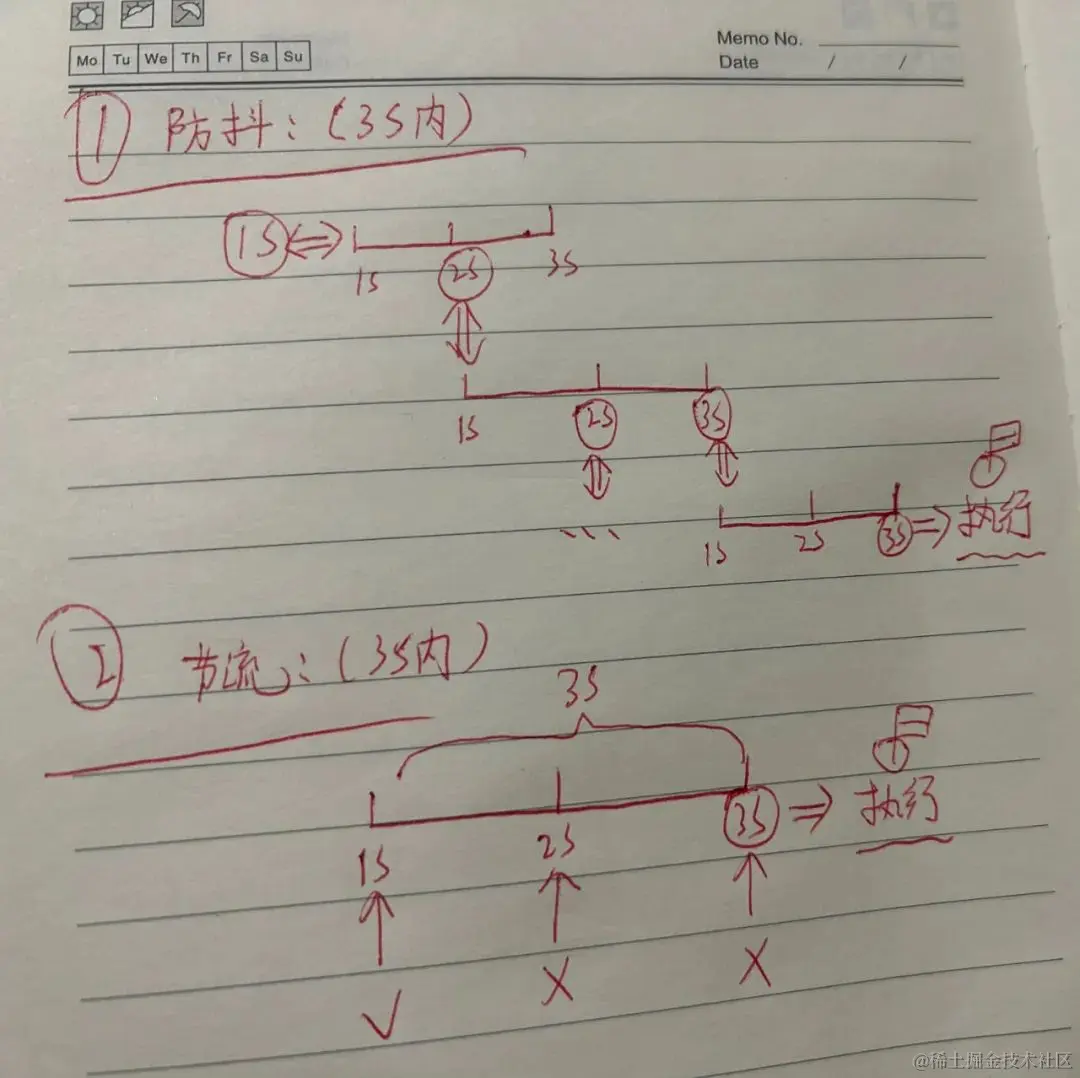 Memo No.
Mo Tu We Th Fr Sa Su
Date / /
① 防抖:(3S内)
1S
1S 2S 3S
1S 2S 3S
...
1S 2S 3S ⇒ 执行
② 节流:(3S内)
3S
1S 2S 3S ⇒ 执行
√ X X
@稀土掘金技术社区